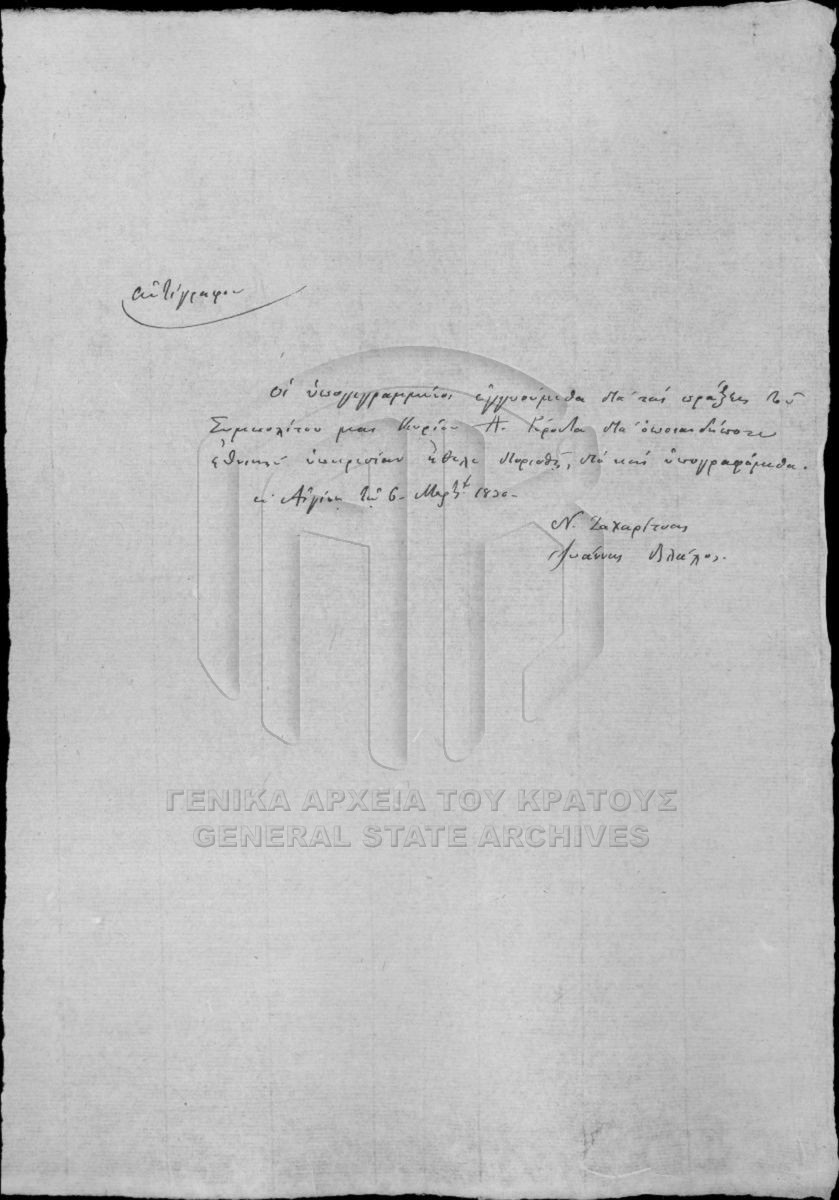 ἀντίγραφον
Οἱ ὑπογεγραμμένοι ἐγγυούμεθα διὰ τὰς πράξεις τοῦ
Συμπολίτου μας Κυρίου Α. διὰ ὁποιανδήποτε
ἐθνικὴν ὑπηρεσίαν ἤθελε διορισθῇ, διὸ καὶ ὑπογραφόμεθα.
ἐν Αἰγίνῃ τῇ 6 Μαρτ. 1830.
Ν. Ζαχαρίτσας
Ἰωάννης Βλάχος.
ΓΕΝΙΚΑ ΑΡΧΕΙΑ ΤΟΥ ΚΡΑΤΟΥΣ
GENERAL STATE ARCHIVES